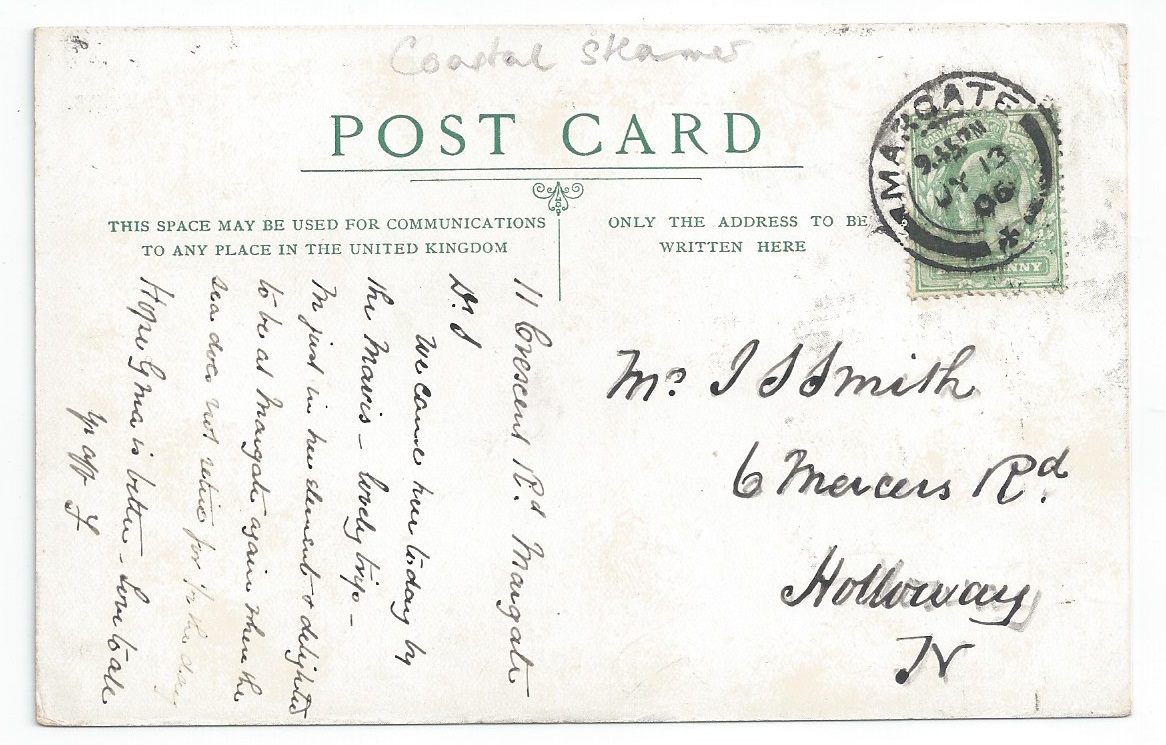 Coastal Steamer
POST CARD
THIS SPACE MAY BE USED FOR COMMUNICATIONS
TO ANY PLACE IN THE UNITED KINGDOM
ONLY THE ADDRESS TO BE
WRITTEN HERE
MARGATE
9.45PM
JY 13
06
NNY
11 Crescent Rd Margate
Dr J
We came here to-day by
the Mavis – lovely trip –
M just in her element & delighted
to be at Margate again when the
sea does not retire for ½ the day
Hope Gma is better – Love to all
Yr aff
Mr J S Smith
6 Mercers Rd
Holloway
N